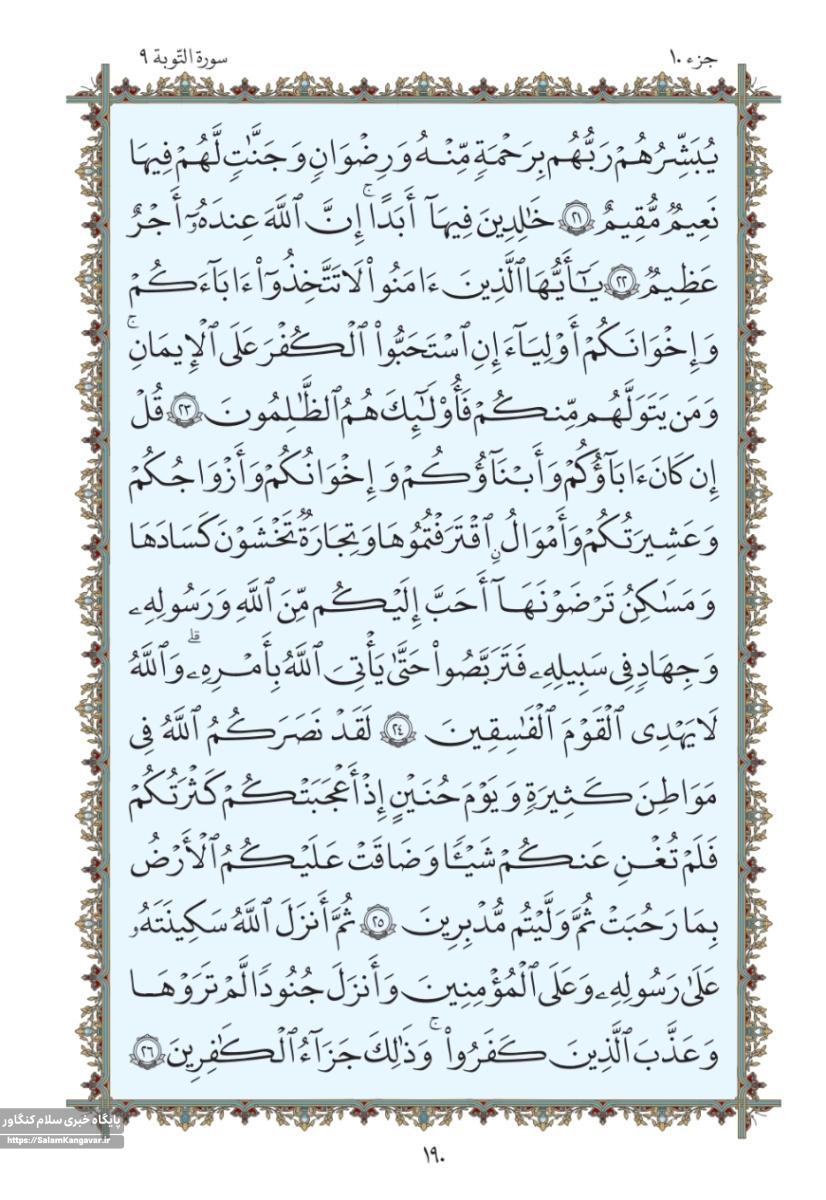 جزء ١٠
سورة التّوبة ٩
يُبَشِّرُهُمْ رَبُّهُم بِرَحْمَةٍ مِّنْهُ وَرِضْوَانٍ وَجَنَّٰتٍ لَّهُمْ فِيهَا
نَعِيمٌ مُّقِيمٌ ٢١ خَٰلِدِينَ فِيهَآ أَبَدًاۚ إِنَّ ٱللَّهَ عِندَهُۥٓ أَجْرٌ
عَظِيمٌ ٢٢ يَٰٓأَيُّهَا ٱلَّذِينَ ءَامَنُوا۟ لَا تَتَّخِذُوٓا۟ ءَابَآءَكُمْ
وَإِخْوَانَكُمْ أَوْلِيَآءَ إِنِ ٱسْتَحَبُّوا۟ ٱلْكُفْرَ عَلَى ٱلْإِيمَانِۚ
وَمَن يَتَوَلَّهُم مِّنكُمْ فَأُو۟لَٰٓئِكَ هُمُ ٱلظَّٰلِمُونَ ٢٣ قُلْ
إِن كَانَ ءَابَآؤُكُمْ وَأَبْنَآؤُكُمْ وَإِخْوَانُكُمْ وَأَزْوَاجُكُمْ
وَعَشِيرَتُكُمْ وَأَمْوَالٌ ٱقْتَرَفْتُمُوهَا وَتِجَارَةٌ تَخْشَوْنَ كَسَادَهَا
وَمَسَٰكِنُ تَرْضَوْنَهَآ أَحَبَّ إِلَيْكُم مِّنَ ٱللَّهِ وَرَسُولِهِۦ
وَجِهَادٍ فِى سَبِيلِهِۦ فَتَرَبَّصُوا۟ حَتَّىٰ يَأْتِىَ ٱللَّهُ بِأَمْرِهِۦۗ وَٱللَّهُ
لَا يَهْدِى ٱلْقَوْمَ ٱلْفَٰسِقِينَ ٢٤ لَقَدْ نَصَرَكُمُ ٱللَّهُ فِى
مَوَاطِنَ كَثِيرَةٍ وَيَوْمَ حُنَيْنٍ إِذْ أَعْجَبَتْكُمْ كَثْرَتُكُمْ
فَلَمْ تُغْنِ عَنكُمْ شَيْـًٔا وَضَاقَتْ عَلَيْكُمُ ٱلْأَرْضُ
بِمَا رَحُبَتْ ثُمَّ وَلَّيْتُم مُّدْبِرِينَ ٢٥ ثُمَّ أَنزَلَ ٱللَّهُ سَكِينَتَهُۥ
عَلَىٰ رَسُولِهِۦ وَعَلَى ٱلْمُؤْمِنِينَ وَأَنزَلَ جُنُودًا لَّمْ تَرَوْهَا
وَعَذَّبَ ٱلَّذِينَ كَفَرُوا۟ۚ وَذَٰلِكَ جَزَآءُ ٱلْكَٰفِرِينَ ٢٦
پایگاه خبری سلام کنگاور
https://SalamKangavar.ir
١٩٠